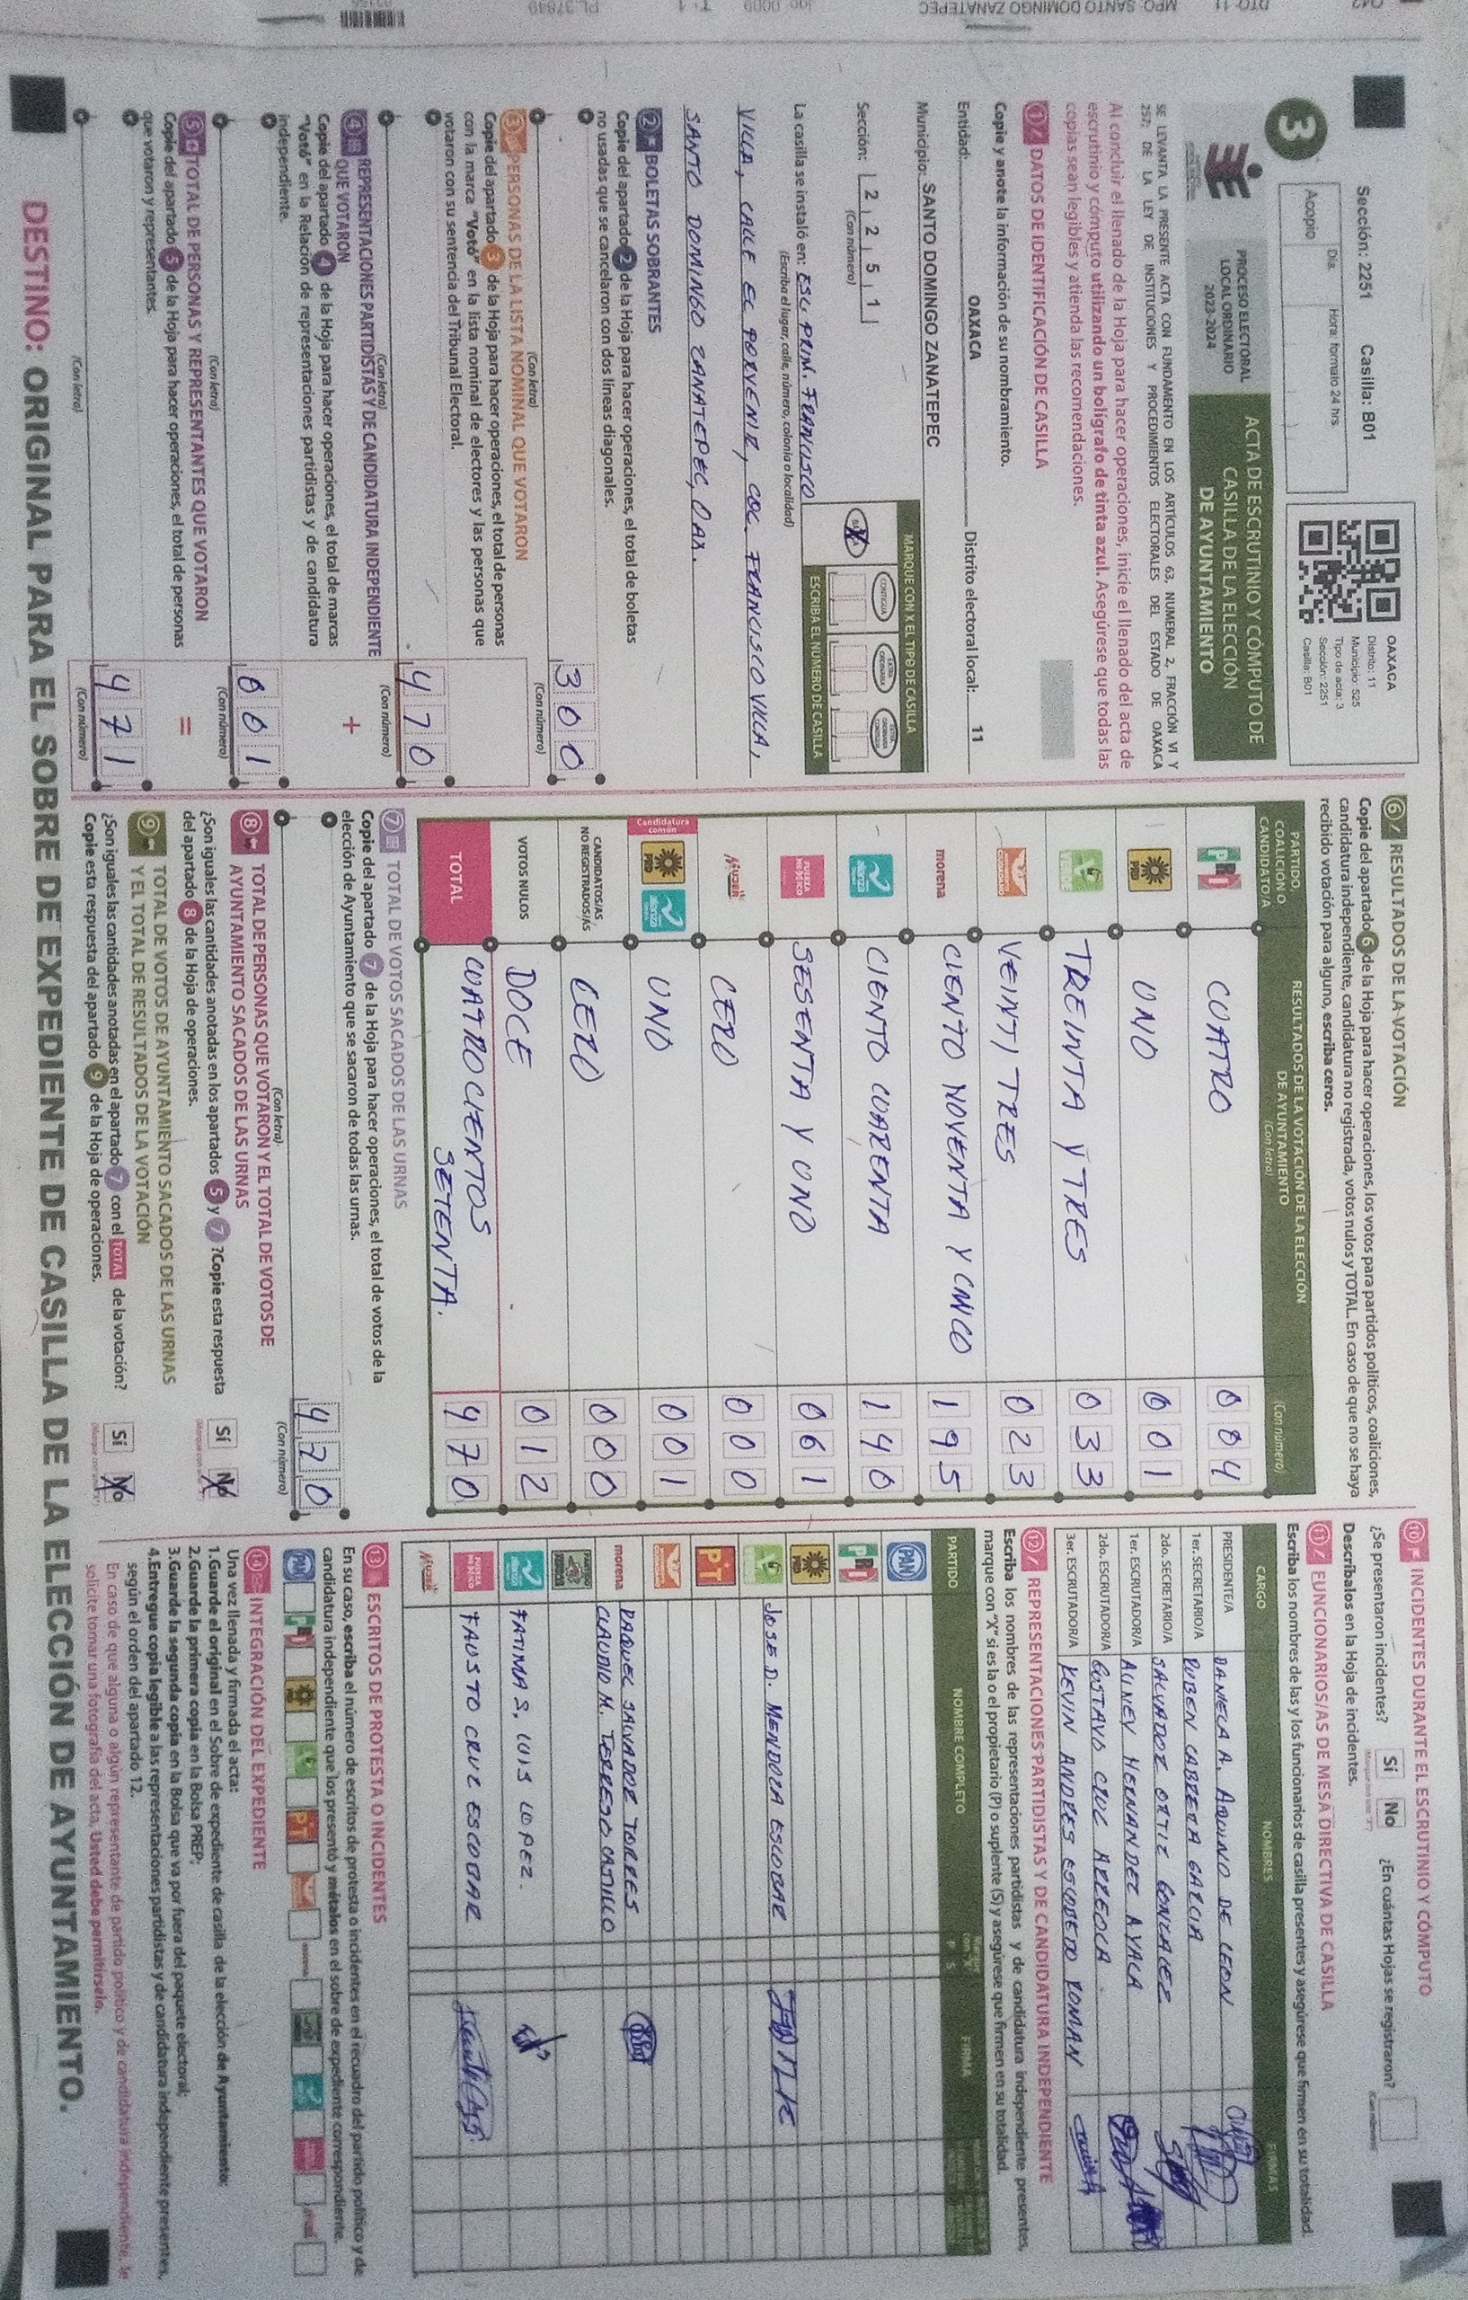 Sección: 2251 Casilla: B01
Día
Hora: formato 24 hrs.
Acopio
3
OAXACA
Distrito: 11
Municipio: 525
Tipo de acta: 3
Sección: 2251
Casilla: B01
PROCESO ELECTORAL
LOCAL ORDINARIO
2023-2024
ACTA DE ESCRUTINIO Y CÓMPUTO DE
CASILLA DE LA ELECCIÓN
DE AYUNTAMIENTO
SE LEVANTA LA PRESENTE ACTA CON FUNDAMENTO EN LOS ARTÍCULOS 63, NUMERAL 2, FRACCIÓN VI Y
257; DE LA LEY DE INSTITUCIONES Y PROCEDIMIENTOS ELECTORALES DEL ESTADO DE OAXACA
Al concluir el llenado de la Hoja para hacer operaciones, inicie el llenado del acta de
escrutinio y cómputo utilizando un bolígrafo de tinta azul. Asegúrese que todas las
copias sean legibles y atienda las recomendaciones.
1 DATOS DE IDENTIFICACIÓN DE CASILLA
Copie y anote la información de su nombramiento.
Entidad: OAXACA Distrito electoral local: 11
Municipio: SANTO DOMINGO ZANATEPEC
Sección: 2 2 5 1
(Con número)
MARQUE CON X EL TIPO DE CASILLA
X
ESCRIBA EL NÚMERO DE CASILLA
La casilla se instaló en: ESC. PRIM. FRANCISCO
(Escriba el lugar, calle, número, colonia o localidad)
VILLA, CALLE EL PORVENIR, COL. FRANCISCO VILLA,
SANTO DOMINGO ZANATEPEC, OAX.
2 BOLETAS SOBRANTES
Copie del apartado 2 de la Hoja para hacer operaciones, el total de boletas
no usadas que se cancelaron con dos líneas diagonales.
300
(Con letra) (Con número)
3 PERSONAS DE LA LISTA NOMINAL QUE VOTARON
Copie del apartado 3 de la Hoja para hacer operaciones, el total de personas
con la marca "Votó" en la lista nominal de electores y las personas que
votaron con su sentencia del Tribunal Electoral.
470
(Con letra) (Con número)
4 REPRESENTACIONES PARTIDISTAS Y DE CANDIDATURA INDEPENDIENTE
QUE VOTARON
+
Copie del apartado 4 de la Hoja para hacer operaciones, el total de marcas
"Votó" en la Relación de representaciones partidistas y de candidatura
independiente.
001
(Con letra) (Con número)
5 TOTAL DE PERSONAS Y REPRESENTANTES QUE VOTARON
=
Copie del apartado 5 de la Hoja para hacer operaciones, el total de personas
que votaron y representantes.
471
(Con letra) (Con número)
6 RESULTADOS DE LA VOTACIÓN
Copie del apartado 6 de la Hoja para hacer operaciones, los votos para partidos políticos, coaliciones,
candidatura independiente, candidatura no registrada, votos nulos y TOTAL. En caso de que no se haya
recibido votación para alguno, escriba ceros.
PARTIDO,
COALICIÓN O
CANDIDATO/A
RESULTADOS DE LA VOTACIÓN DE LA ELECCIÓN
DE AYUNTAMIENTO
(Con letra)
(Con número)
PRI CUATRO 004
PRD UNO 001
TREINTA Y TRES 033
VEINTI TRES 023
morena CIENTO NOVENTA Y CINCO 195
CIENTO CUARENTA 140
FUERZA MÉXICO SESENTA Y UNO 061
MUJER CERO 000
Candidatura común
PRD UNO 001
CANDIDATOS/AS
NO REGISTRADOS/AS CERO 000
VOTOS NULOS DOCE 012
TOTAL CUATROCIENTOS
SETENTA. 470
7 TOTAL DE VOTOS SACADOS DE LAS URNAS
Copie del apartado 7 de la Hoja para hacer operaciones, el total de votos de la
elección de Ayuntamiento que se sacaron de todas las urnas.
470
(Con letra) (Con número)
8 TOTAL DE PERSONAS QUE VOTARON Y EL TOTAL DE VOTOS DE
AYUNTAMIENTO SACADOS DE LAS URNAS
¿Son iguales las cantidades anotadas en los apartados 5 y 7 ? Copie esta respuesta
del apartado 8 de la Hoja de operaciones.
Sí No
9 TOTAL DE VOTOS DE AYUNTAMIENTO SACADOS DE LAS URNAS
Y EL TOTAL DE RESULTADOS DE LA VOTACIÓN
¿Son iguales las cantidades anotadas en el apartado 7 con el TOTAL de la votación?
Copie esta respuesta del apartado 9 de la Hoja de operaciones.
Sí No
10 INCIDENTES DURANTE EL ESCRUTINIO Y CÓMPUTO
¿Se presentaron incidentes? Sí No ¿En cuántas Hojas se registraron?
Descríbalos en la Hoja de incidentes.
11 FUNCIONARIOS/AS DE MESA DIRECTIVA DE CASILLA
Escriba los nombres de las y los funcionarios de casilla presentes y asegúrese que firmen en su totalidad.
CARGO NOMBRES FIRMAS
PRESIDENTE/A DANELA A. AQUINO DE LEON
1er. SECRETARIO/A RUBEN CABRERA GARCIA
2do. SECRETARIO/A SALVADOR ORTIZ GONZALEZ
1er. ESCRUTADOR/A AUNEY HERNANDEZ AYALA
2do. ESCRUTADOR/A GUSTAVO CRUZ ARREOLA
3er. ESCRUTADOR/A KEVIN ANDRES ESCUDERO ROMAN
12 REPRESENTACIONES PARTIDISTAS Y DE CANDIDATURA INDEPENDIENTE
Escriba los nombres de las representaciones partidistas y de candidatura independiente presentes,
marque con "X" si es la o el propietario (P) o suplente (S) y asegúrese que firmen en su totalidad.
PARTIDO NOMBRE COMPLETO P S FIRMA
PAN
PRI
PRD
JOSE D. MENDOZA ESCOBAR
PT
RAQUEL SALVADOR TORRES
morena CLAUDIO M. TERRESO CASTILLO
FATIMA S. LUIS LOPEZ.
FAUSTO CRUZ ESCOBAR
MUJER
13 ESCRITOS DE PROTESTA O INCIDENTES
En su caso, escriba el número de escritos de protesta o incidentes en el recuadro del partido político y de
candidatura independiente que los presentó y métalos en el sobre de expediente correspondiente.
14 INTEGRACIÓN DEL EXPEDIENTE
Una vez llenada y firmada el acta:
1.Guarde el original en el Sobre de expediente de casilla de la elección de Ayuntamiento;
2.Guarde la primera copia en la Bolsa PREP;
3.Guarde la segunda copia en la Bolsa que va por fuera del paquete electoral;
4.Entregue copia legible a las representaciones partidistas y de candidatura independiente presentes,
según el orden del apartado 12.
En caso de que alguna o algún representante de partido político y de candidatura independiente, le
solicite tomar una fotografía del acta, Usted debe permitírselo.
DESTINO: ORIGINAL PARA EL SOBRE DE EXPEDIENTE DE CASILLA DE LA ELECCIÓN DE AYUNTAMIENTO.
DTO 11 MPO: SANTO DOMINGO ZANATEPEC